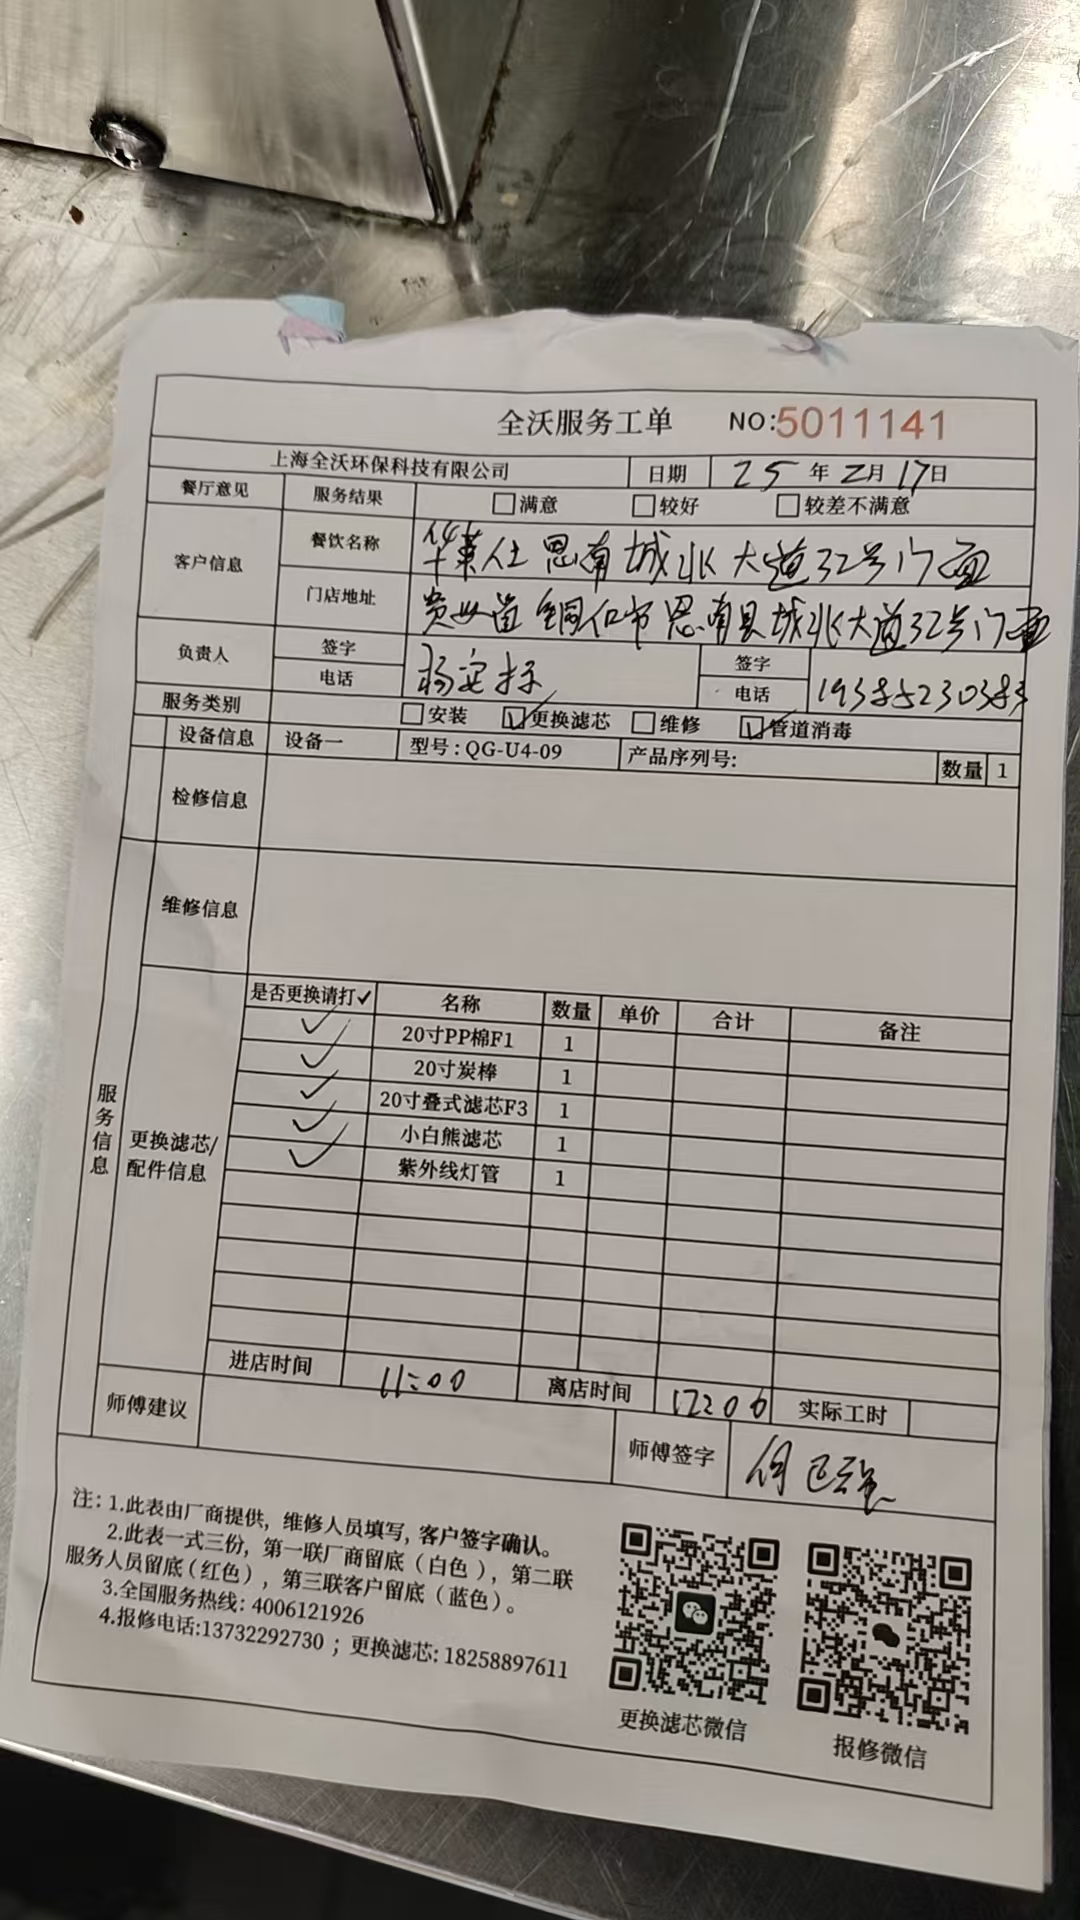 全沃服务工单 NO:5011141
上海全沃环保科技有限公司 日期 25年2月17日
餐厅意见 服务结果 满意 较好 较差不满意
客户信息 餐饮名称 华莱仕思南城北大道32号门面
门店地址 贵州省铜仁市思南县城北大道32号门面
负责人 签字 签字
电话 电话 19385230383
服务类别 安装 ✓更换滤芯 维修 ✓管道消毒
设备信息 设备一 型号:QG-U4-09 产品序列号: 数量 1
检修信息
维修信息
服务信息
更换滤芯/
配件信息
是否更换请打✓ 名称 数量 单价 合计 备注
✓ 20寸PP棉F1 1
✓ 20寸炭棒 1
✓ 20寸叠式滤芯F3 1
✓ 小白熊滤芯 1
✓ 紫外线灯管 1
进店时间 11:00 离店时间 实际工时
师傅建议 师傅签字
注:1.此表由厂商提供,维修人员填写,客户签字确认。
2.此表一式三份,第一联厂商留底(白色),第二联
服务人员留底(红色),第三联客户留底(蓝色)。
3.全国服务热线:4006121926
4.报修电话:13732292730;更换滤芯:18258897611
更换滤芯微信
报修微信